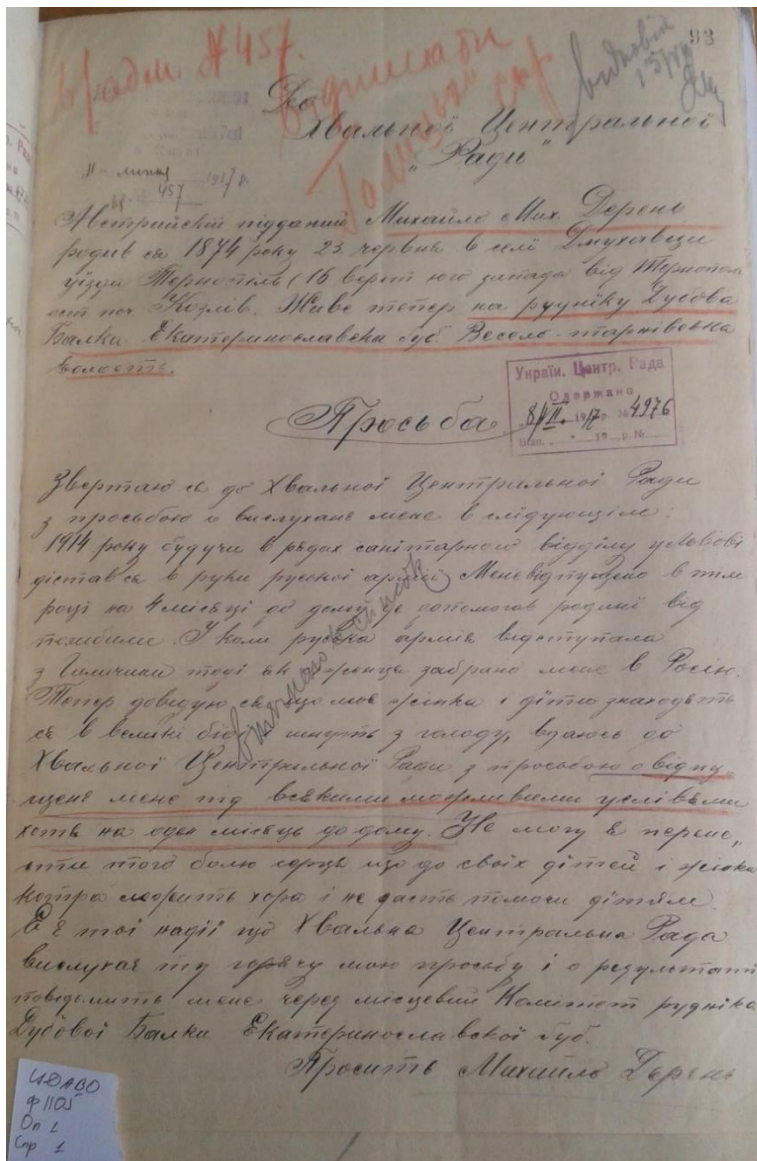 в/адм. № 457.
відписати
Галицький
93
До
Хвальної Центральної
"Ради"
11 липня 1917 р.
457
Австрийский підданий Михайло Мих. Дерень
родив ся 1874 року 23 червня в селі Дмухавци
уїзди Тернопіль (16 верст юго запада від Тернополя
ост поч. Козлів. Живе тепер на рудніку Дубова
Балки Екатеринославска губ. Весело-тарнівська
волость.
Україн. Центр. Рада
Одержано
8/VII 1917 р. № 4976
Відп. " " 19 р. №
Просьба
Звертаю ся до Хвальної Центральної Ради
з просьбою о вислуханє мене в слідующім:
1914 року будучи в рядах санітарного відділу у Львові
дістався в руки руської армії Мене відпущено в тим
році на 4 місяці до дому де допомогав родині від
погибили. І коли руська армія відступала
з Галичини тоді як жонця забрано мене в Росію.
Тепер довидую ся що моє жінка і діти знаходять
ся в великі біді гинуть з голоду, вдаюсь до
Хвальної Центральної Ради з просьбою о відпу_
щенє мене під всякими можливими услівями
хоть на оден місяць до дому. Не могу я перене„
сти того болю серця що до своїх дітей і жінки
котра лежить хора і не дасть помочи дітям.
Є я тої надії що Хвальна Центральна Рада
вислухає ту горячу мою просьбу і о резултаті
повідомить мене через місцевий Комітет рудніка
Дубової Балки Екатеринославскої губ.
Просить Михайло Дерень
ЦДАВО
ф 1105
Оп 1
Спр 1